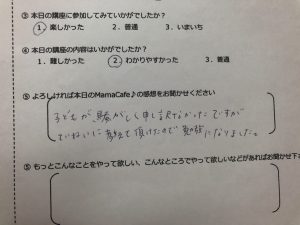 ③ 本日の講座に参加してみていかがでしたか？
1. 楽しかった　2. 普通　3. いまいち
④ 本日の講座の内容はいかがでしたか？
1. 難しかった　2. わかりやすかった　3. 普通
⑤ よろしければ本日のMamaCafe♪の感想をお聞かせください
子どもが、騒がしく申し訳なかったですが
ていねいに教えて頂けたので勉強になりました。
⑤ もっとこんなことをやって欲しい、こんなところでやって欲しいなどがあればお聞かせ下